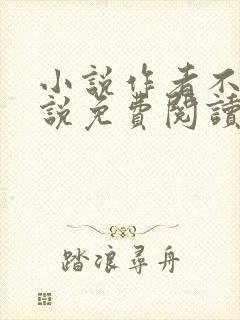 小說作者不
說免費閱讀
踏浪尋舟